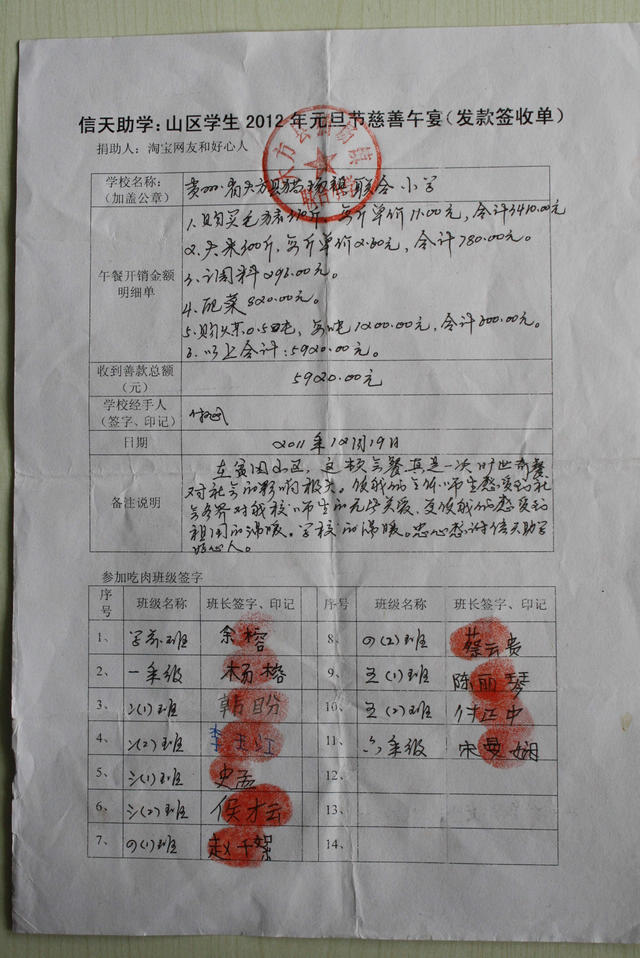 信天助学：山区学生2012年元旦节慈善午宴（发款签收单）
捐助人：淘宝网友和好心人
学校名称：
（加盖公章）
贵州省大方县猪场镇联合小学
午餐开销金额
明细单
1.购买毛猪310斤，每斤单价11.00元，合计3410.00元
2.大米300斤，每斤单价2.60元，合计780.00元。
3.调料290.00元。
4.配菜820.00元。
5.购煤0.5吨，每吨1200.00元，合计600.00元。
6.以上合计：5920.00元。
收到善款总额
（元）
5920.00元
学校经手人
（签字、印记）
日期
2011年12月19日
备注说明
在贫困山区，这校会餐真是一次旷世奇餐
对社会的影响极大。使我们全体师生感受到社
会各界对我校师生的无价关爱，更使我们感受到
祖国的温暖。学校的温暖。忠心感谢信天助学
好心人。
参加吃肉班级签字
序号 班级名称 班长签字、印记 序号 班级名称 班长签字、印记
1、 学前班 余榕 8、 四(2)班 蔡云贵
2、 一年级 杨榕 9、 五(1)班 陈丽琴
3、 二(1)班 韩盼 10、 五(2)班 付江中
4、 二(2)班 李 红 11、 六年级 宋曼娴
5、 三(1)班 史孟 12、
6、 三(2)班 侯才云 13、
7、 四(1)班 赵千 14、